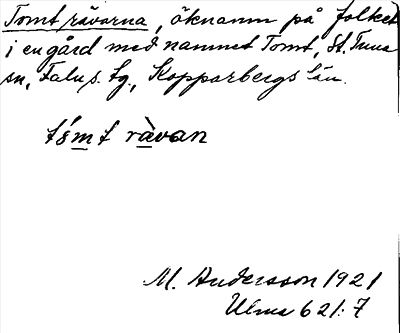 Tomt rävarna, öknamn på folket
i en gård med namnet Tomt, St. Tuna
sn, Falu s. tg, Kopparbergs län.
tómt ràvan
M. Andersson 1921
Ulma 621:7